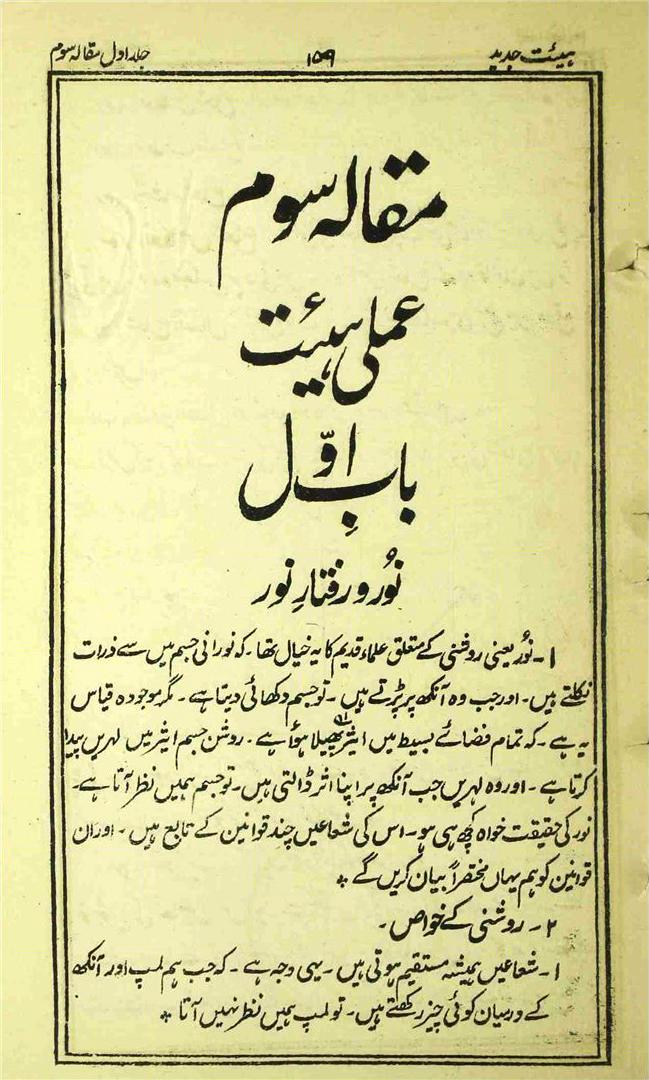 ہیئت جدید ۱۵۹ جلد اول مقالہ سوم
مقالہ سوم
عملی ہیئت
بابِ اوّل
نُور و رفتارِ نور
۱۔ نُور یعنی روشنی کے متعلق علماء قدیم کا یہ خیال تھا۔ کہ نورانی جسم میں سے ذرات
نکلتے ہیں۔ اور جب وہ آنکھ پر پڑتے ہیں۔ تو جسم دکھائی دیتا ہے۔ مگر موجودہ قیاس
یہ ہے۔ کہ تمام فضائے بسیط میں ایثر پھیلا ہؤا ہے۔ روشن جسم ایثر میں لہریں پیدا
کرتا ہے۔ اور وہ لہریں جب آنکھ پر اپنا اثر ڈالتی ہیں۔ تو جسم ہمیں نظر آتا ہے۔
نور کی حقیقت خواہ کچھ ہی ہو۔ اس کی شعاعیں چند قوانین کے تابع ہیں۔ اور ان
قوانین کو ہم یہاں مختصراً بیان کریں گے *
۲۔ روشنی کے خواص۔
۱۔ شعاعیں ہمیشہ مستقیم ہوتی ہیں۔ یہی وجہ ہے۔ کہ جب ہم لمپ اور آنکھ
کے درمیان کوئی چیز رکھتے ہیں۔ تو لمپ ہمیں نظر نہیں آتا *